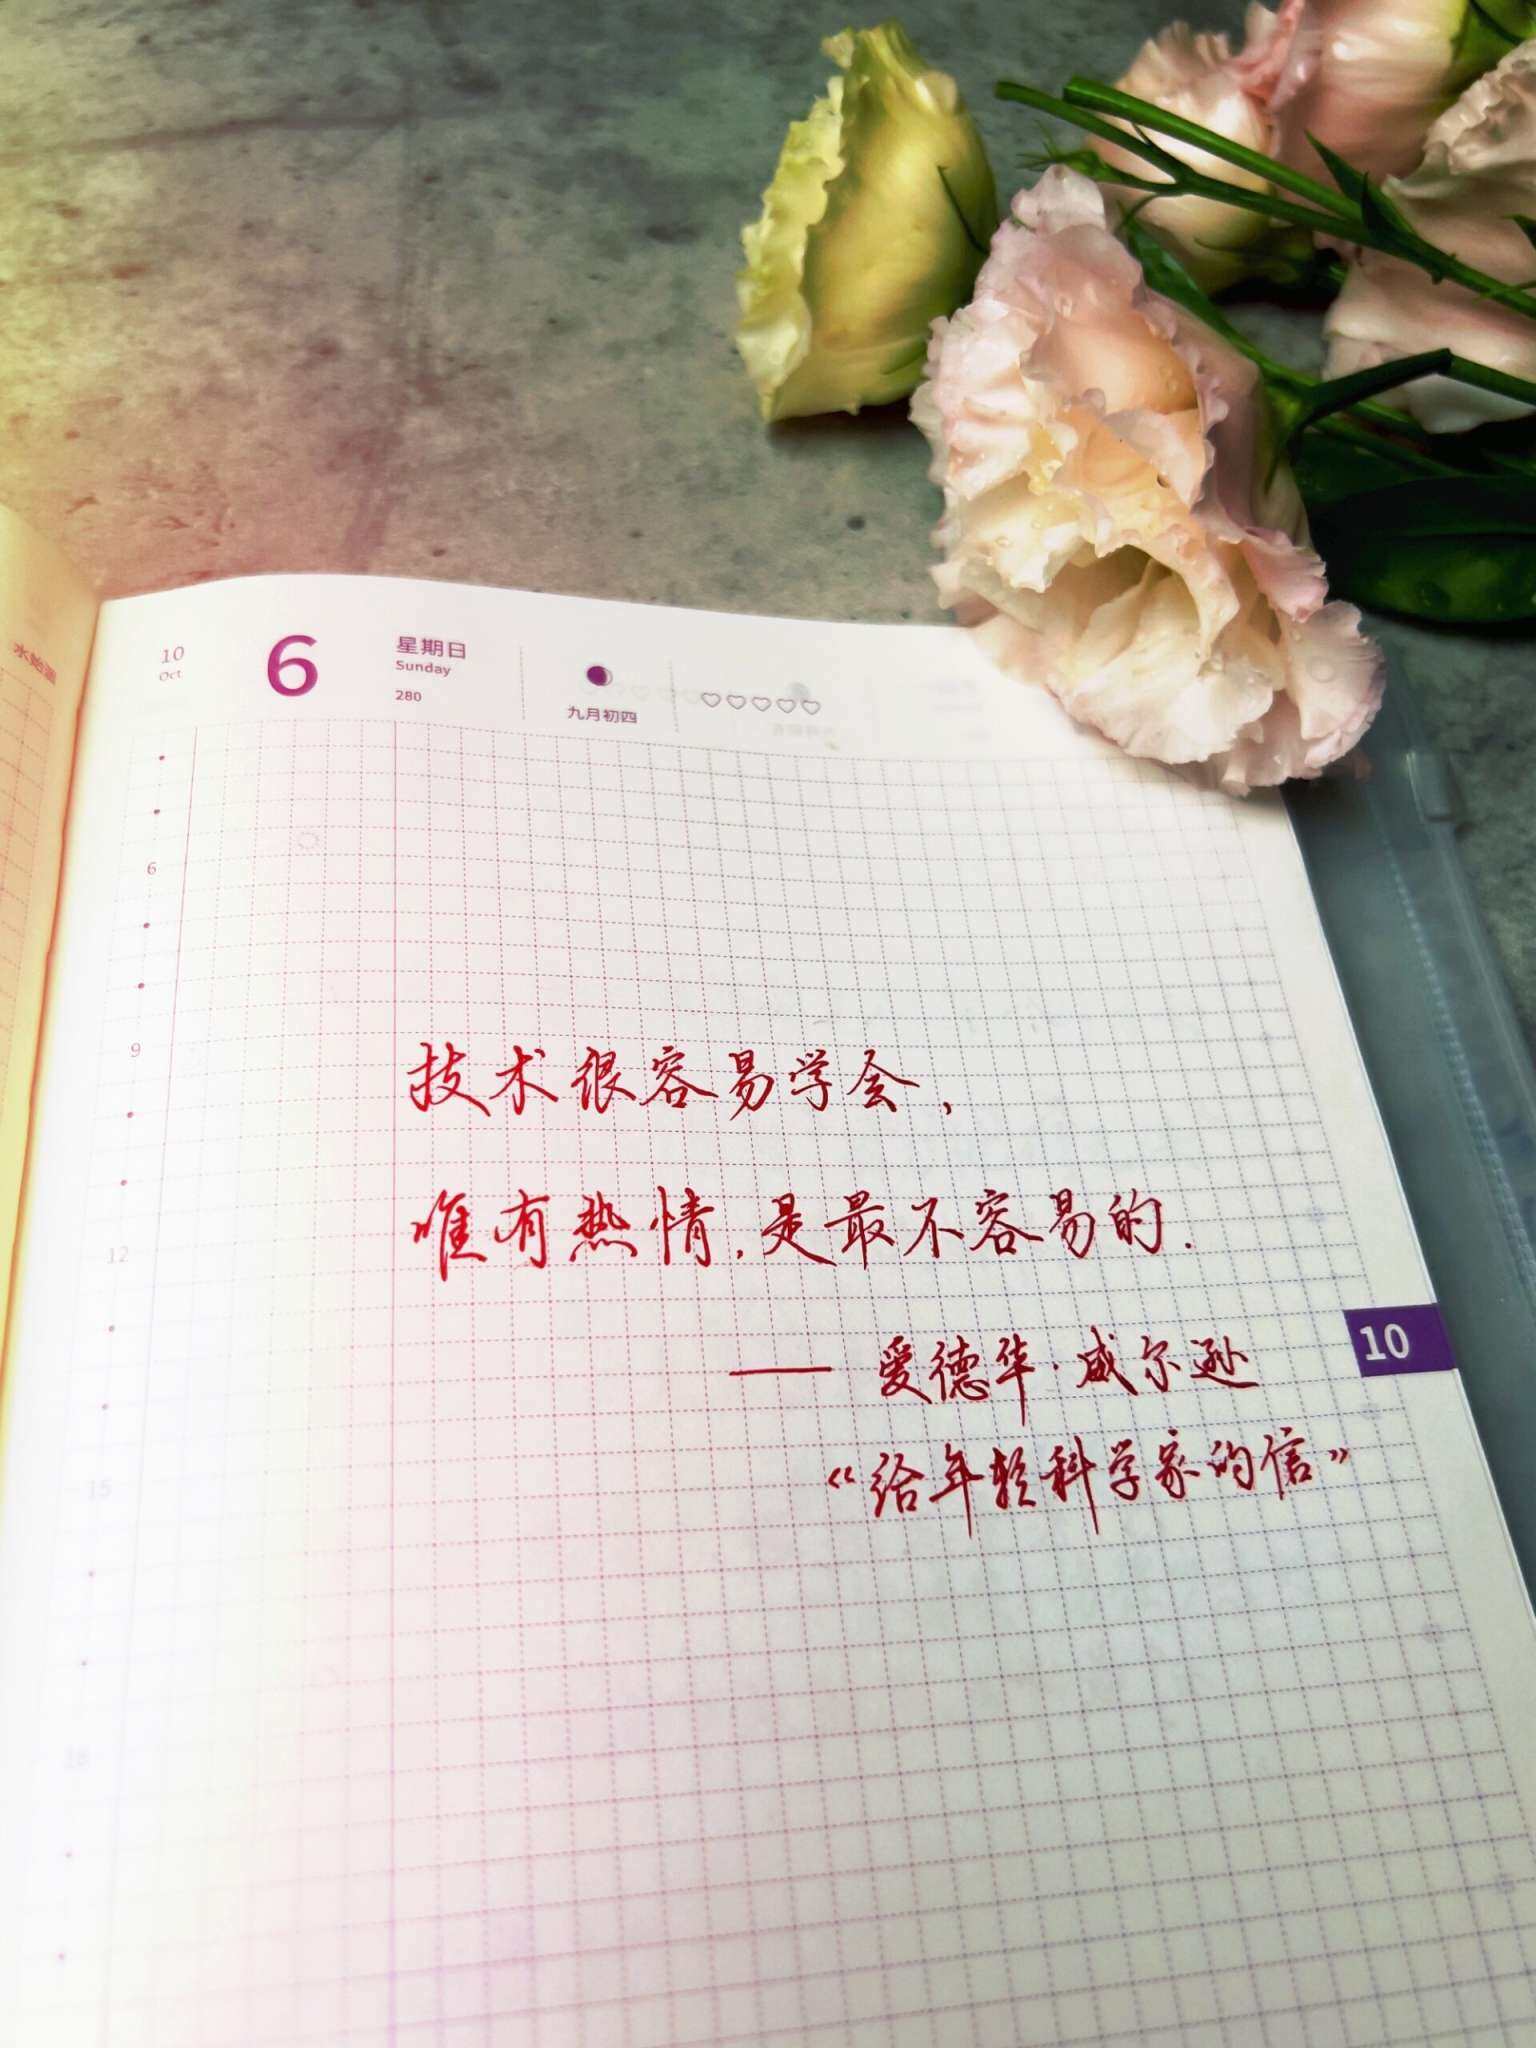 水始涸
10
Oct
6
星期日
Sunday
280
九月初四
6
9
技术很容易学会,
唯有热情,是最不容易的.
12
—— 爱德华·威尔逊
10
“给年轻科学家的信”
15
18